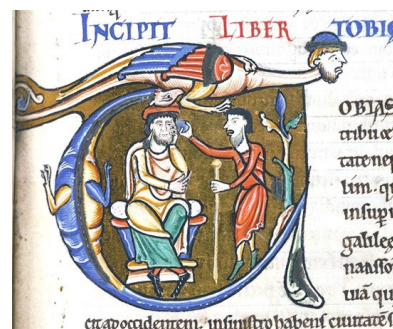 INCIPIT LIBER TOBIE
OBIAS
tribu &
tatenep
lim. qu
insup
galilee
naasso
uia qu
cit ad occidentem. in sinistro habens ciuitatē s